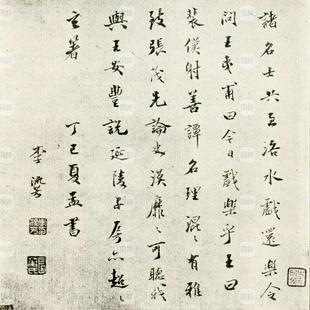 諸名士共至洛水戲還樂令
問王夷甫曰今日戲樂乎王曰
裴僕射善譚名理混混有雅
致張茂先論史漢靡靡可聽我
與王安豐說延陵子房亦超超
玄著 丁巳夏孟書
李流芳